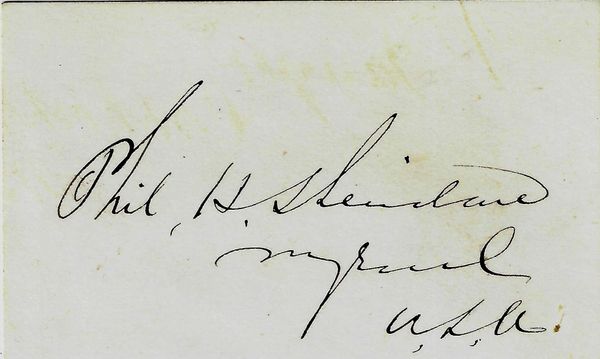 Phil. H. Sheridan
M Genl
U.S.A.